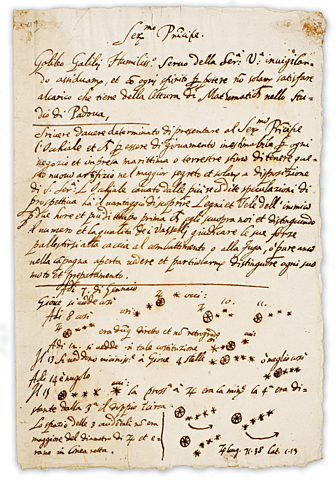 Ser.mo Principe.
Galileo Galilei Humiliss.o Servo della Ser.a V.a invigilan-
do assiduam.te, et cō ogni spirito p potere nō solam. satisfare
alcarico che tiene della lettura di Mathematich. nello Stu-
dio di Padova,
Scrivere d'avere determinato di presentare al Ser.mo Principe
l'Ochiale et p essere di giovamento inestimabile p ogni
negozio et impresa marittima o terrestre stimo di tenere que-
sto nuovo artifizio nel maggior segreto et solam. a disposizione
di S. Ser.tà L'Ochiale cavato dalle più recōdite speculazioni di
prospettiva ha il vantaggio di scoprire Legni et Vele dell'inimico
p due hore et più di tempo prima ch'egli scuopra noi et distinguendo
il numero et la qualità de i Vasselli giudicare le sue forze
pallestirsi alla caccia al combattimento o alla fuga, o pure anco
nella capāgna aperta vedere et particolarm. distinguere ogni suo
moto et preparamento.
Adi 7. di Gennaio
Giove si vedde così
Adi 8 così
10. 11.
era dūq diretto et nō retrogrado
Adi 12. si vedde in tale costituzione
Il 13 si veddono vicinissi.e a Giove 4 stelle o meglio così
Adi 14 è nugolo
Il 15 la pross.a a ♃ era la min.re la 4.a era di-
stante dalla 3.a il doppio circa
Lo spazio delle 3 occidētali nō era
maggiore del diametro di ♃ et e-
rano in linea retta.
♃ long. 71.38 lat. 1.13